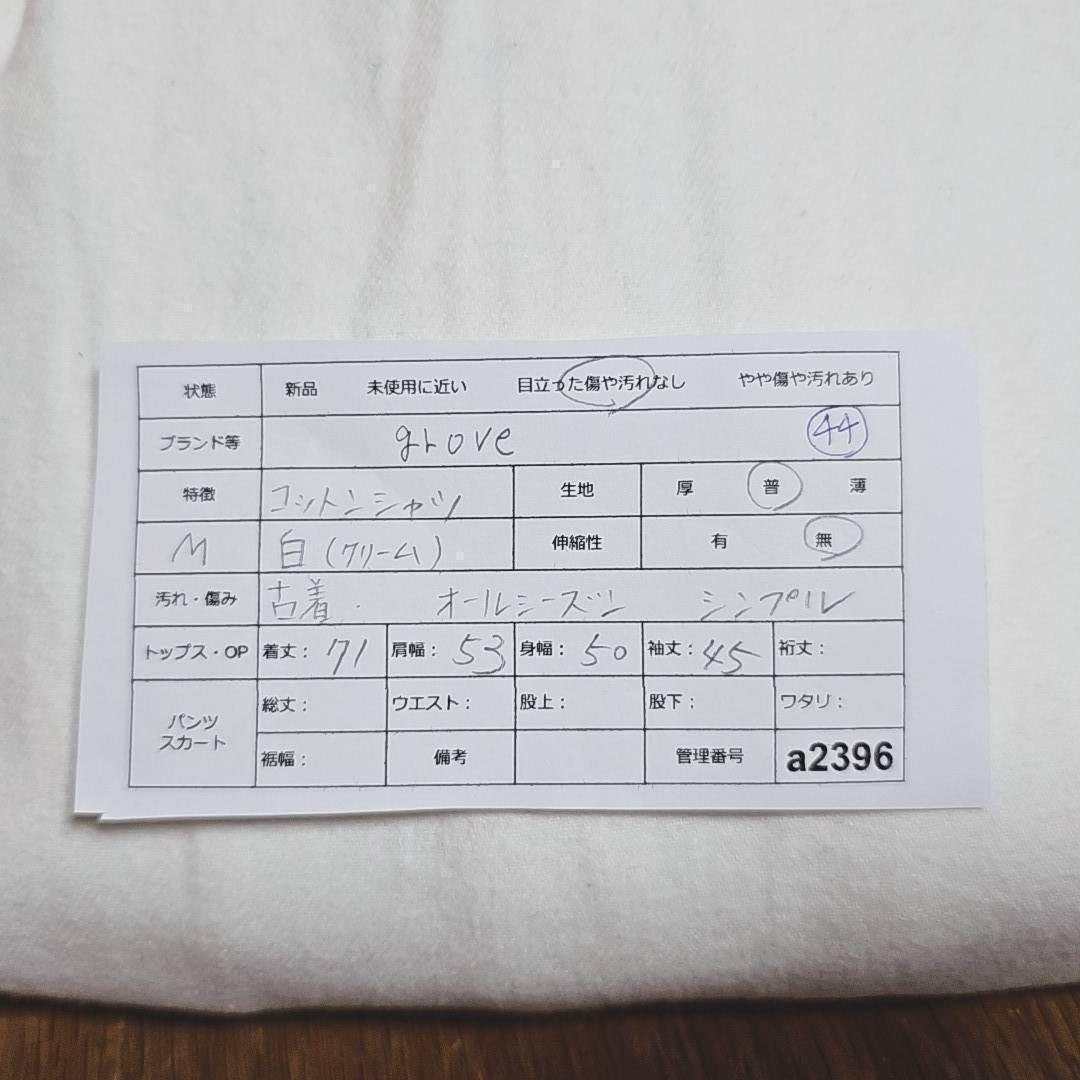 状態 新品 未使用に近い 目立った傷や汚れなし やや傷や汚れあり
ブランド等 grove 44
特徴 コットンシャツ 生地 厚 普 薄
M 白(クリーム) 伸縮性 有 無
汚れ・傷み 古着. オールシーズン シンプル
トップス・OP 着丈: 71 肩幅: 53 身幅: 50 袖丈: 45 裄丈:
パンツ スカート 総丈: ウエスト: 股上: 股下: ワタリ:
裾幅: 備考 管理番号 a2396